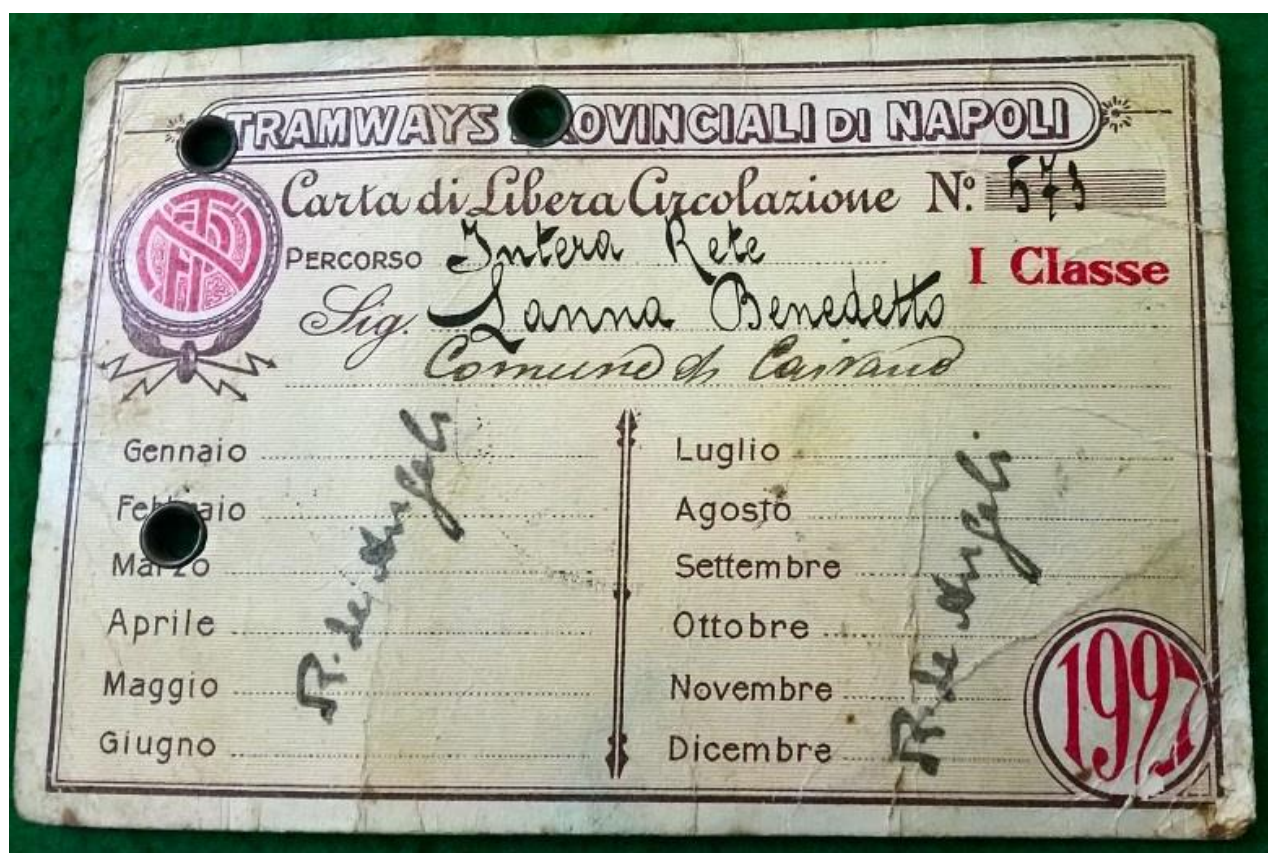 TRAMWAYS PROVINCIALI DI NAPOLI
Carta di Libera Circolazione Nº. 571
PERCORSO Intera Rete
I Classe
Sig. Lanna Benedetto
Comune di Caivano
Gennaio
Febbraio
Marzo
Aprile
Maggio
Giugno
R. de Angelis
Luglio
Agosto
Settembre
Ottobre
Novembre
Dicembre
R. de Angelis
1927